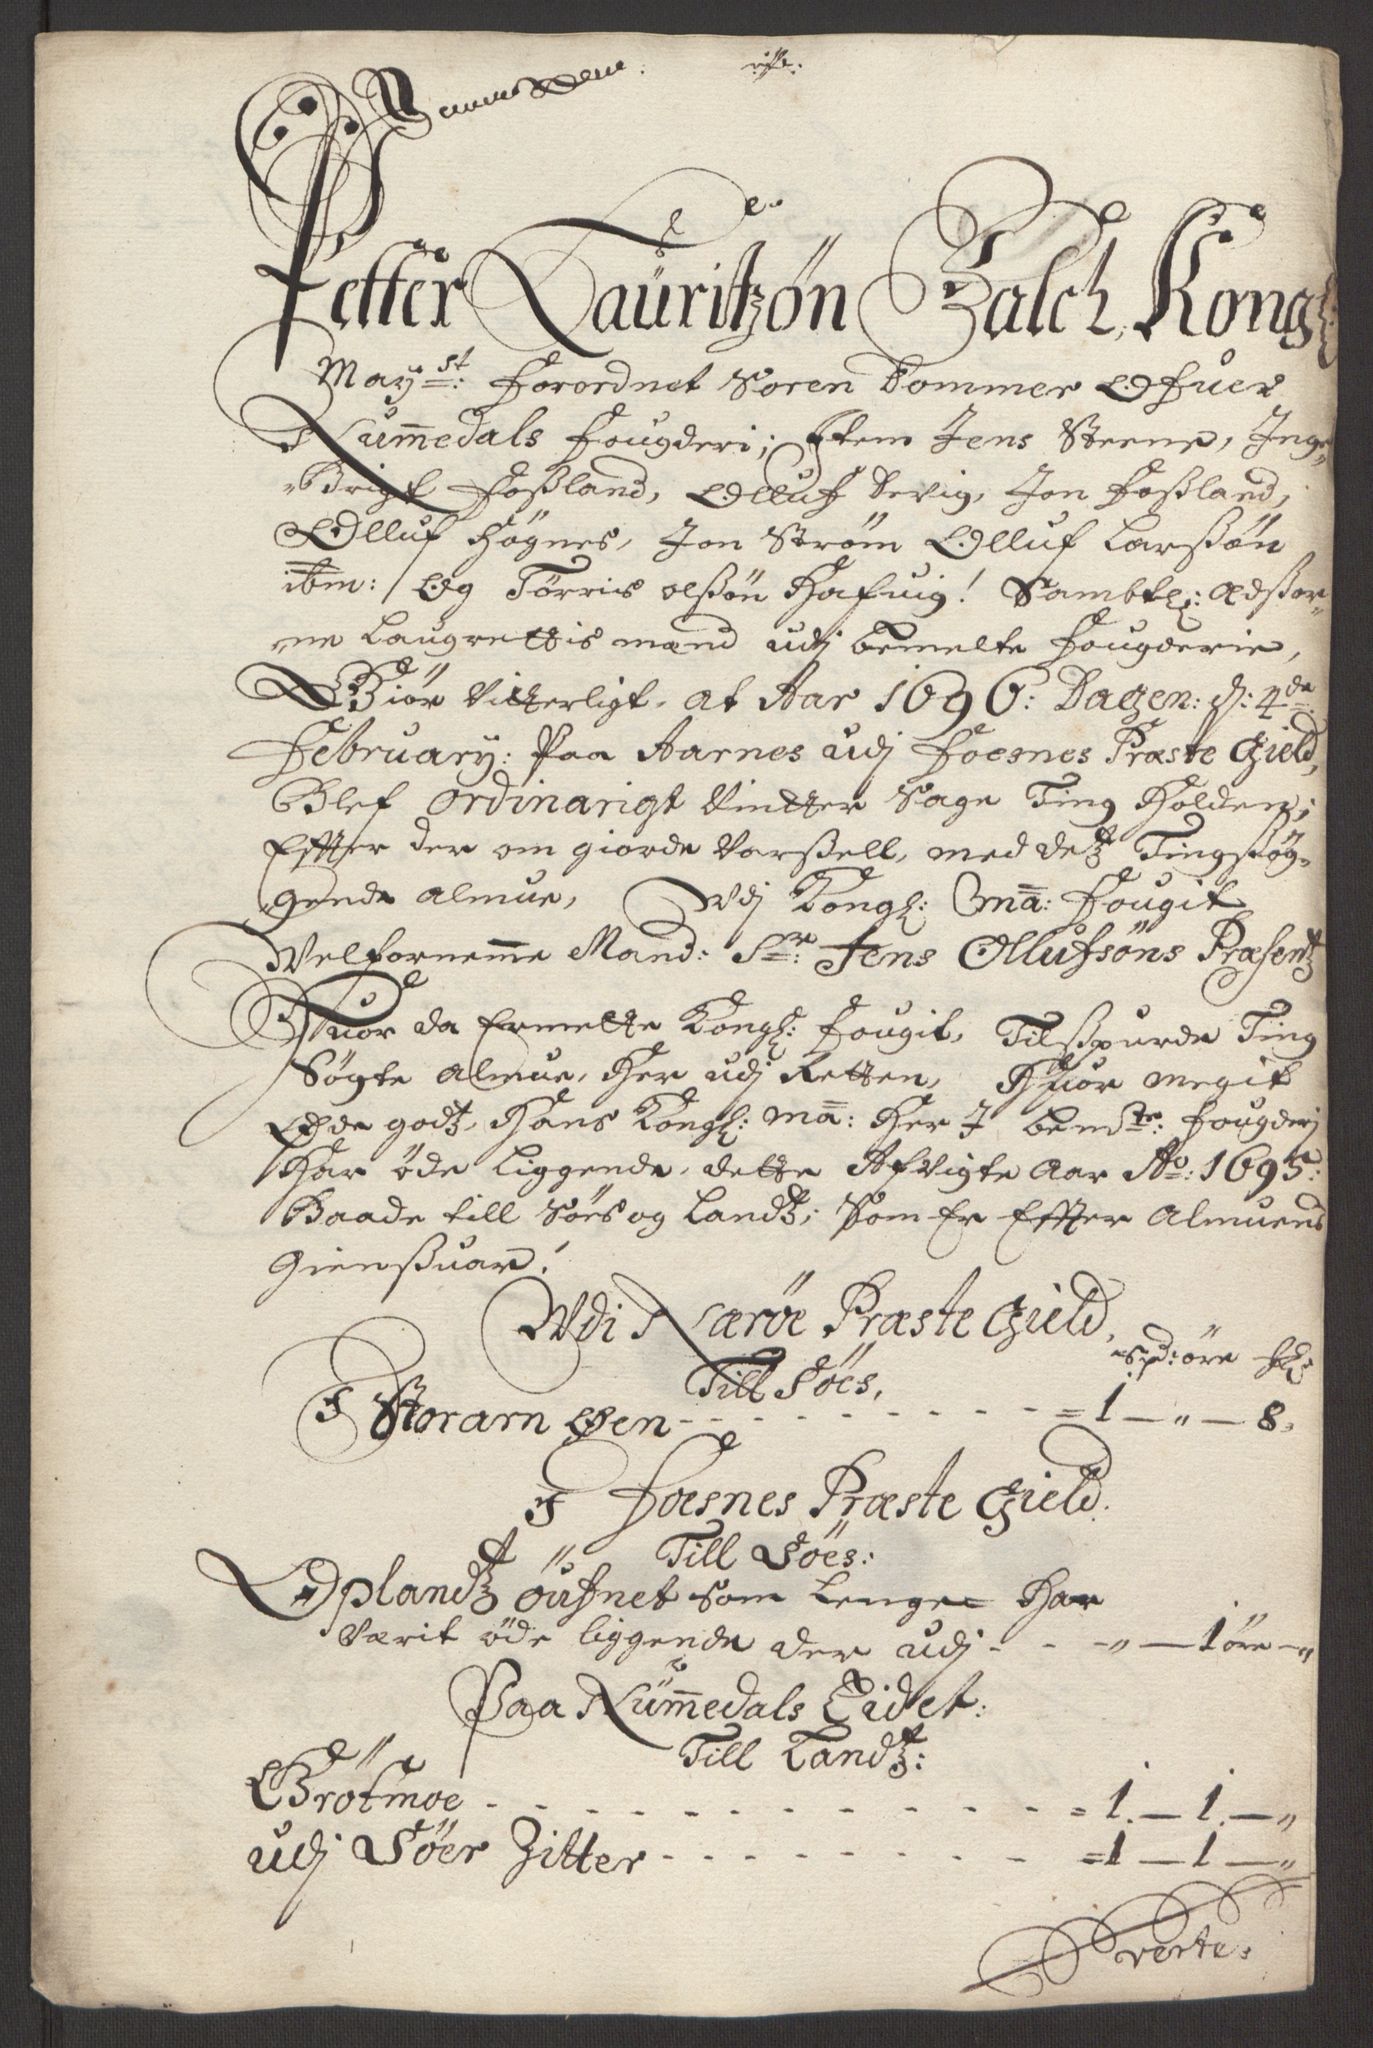 Petter Lauritzøn Falch, Kongl:
May:st: forordnet Soren Dommer Ofuer
Nummedals fougderi; Item Jens Steene, Inge-
Brigt Foßland, Olluf Devig, Jon Foßland,
Olluf Høgnes, Jon Strøm Olluf Larßøn
ibm: Og Tørris olßøn Hafuig! Sambtl: Edßor-
ne Laugrettis mænd udj bemelte fougderie,
Giør Vitterligt, at Aar 1696: Dagen: d: 4de:
February: Paa Aarnes udj Foesnes Præste Gield,
Blef ordinarigt Vintter Sage Ting Holden;
Effter der om giorde Varßell, med detz Tingsøg-
gende almue, Udj Kongl: Ma: fougit
Welfornemme Mand: Sr: Jens Ollufsøns Præsentz
Huor da Ermelte Kongl: fougit, Tilßpurde Ting
Søgte almue, Her udj Retten, Huor megit
Øde godtz, Hans Kongl: Ma: Her I bemte: fougderj
Har öde liggende, dette Afvigte Aar Ao: 1695:
Baade till Søes og Landtz; Som Er Effter Almuens
Gienßuar!
Udi Nærøe Præste Gield,
Spd: öre
Till Søes,
I Storarn Øen - - - = 1 — " — 8.
I Foesnes Præste Gield.
Till Søes:
Oplandtz öufnet som lenge Har
Værit øde liggende der udj - - - " — 1 öre — "
Paa Nummedals Eidet:
Till Landtz:
Grøtmoe - - - = 1. — 1. — "
udj Søer Zitter - - - = 1 — 1 — "
verte.